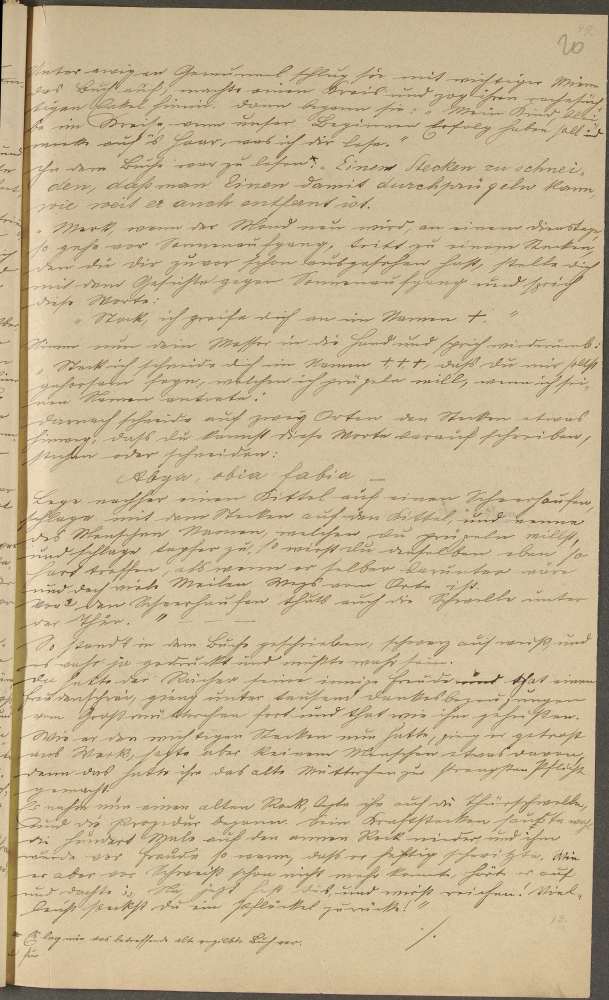 20
Unter ewigem Gemurmel schlug sie mit wichtiger Miene
das Buch auf, machte einen Kreis und zog ihren rachesüch-
tigen hinein. Dann begann sie: "Mein Kind
be im Kreise, wenn unser Beginnen Erfolg haben soll und
merke auf's Haar, was ich dir lese."
In dem Buche war zu lesen*: "Einen Stecken zu schnei-
den, daß man Einen damit durchprügeln kann,
wie weit er auch entfernt ist.
"Merk, wenn der Mond neu wird, an einem Dienstage,
so gehe vor Sonnenaufgang, tritt zu einem Stecken,
den du dir zuvor schon ausgesehen hast, stelle dich
mit dem Gesichte gegen Sonnenaufgang und sprich
diese Worte:
"Stock, ich greife dich an im Namen †."
Nimm nun dein Messer in die Hand und sprich wiederumb:
"Stock ich schneide dich im Namen †, †, †, daß du mir sollst
gehorsam seyn, welchen ich prügeln will, wenn ich sei-
nen Namen antrete."
Darnach schneide auf zwey Orten den Stecken etwas
hinweg, daß du kannst diese Worte darauf schreiben,
stechen oder schneiden:
Abya, obia fabia —
Lege nachher einen Kittel auf einen Scheerhaufen,
schlage mit dem Stecken auf den Kittel, und nenne
des Menschen Namen, welchen du prügeln willst,
und schlage tapfer zu, so wirst du denselben eben so
hart treffen, als wenn er selber darunter wäre
und doch viele Meilen Wegs vom Orte ist.
den Scheerhaufen thuts auch die Schwelle unter
der Thür."
So stands in dem Buche geschrieben, schwarz auf weiß und
es wahr ja gedruckt und mußte wahr sein.
Da hatte der seine innige Freude und that einen
Freudenschrei, gieng unter tausend Dankesbezeugungen
vom Großmütterchen fort und that wie ihm geheißen.
Wie er den wichtigen Stecken nun hatte, ging er getrost
ans Werk, sagte aber keinem Menschen etwas davon,
denn das hatte ihm das alte Mütterchen zur strengsten Pflicht
gemacht.
Er nahm nun einen alten Rock, legte ihn auf die Thürschwelle,
und die Prozedur begann. Sein Kraftstecken sauste wohl
die hundert Male auf den armen Rock nieder und ihm
wurde vor Freude so warm, daß er heftig schwitzte. Wie
er aber vor Schweiß schon nicht mehr konnte, hörte er auf
und dachte: "Na, jetzt und muß reichen! Viel-
leicht steckst du ein Pflückel zurück!"
./.
* Es lag mir das betreffende alt vergilbte Buch vor.